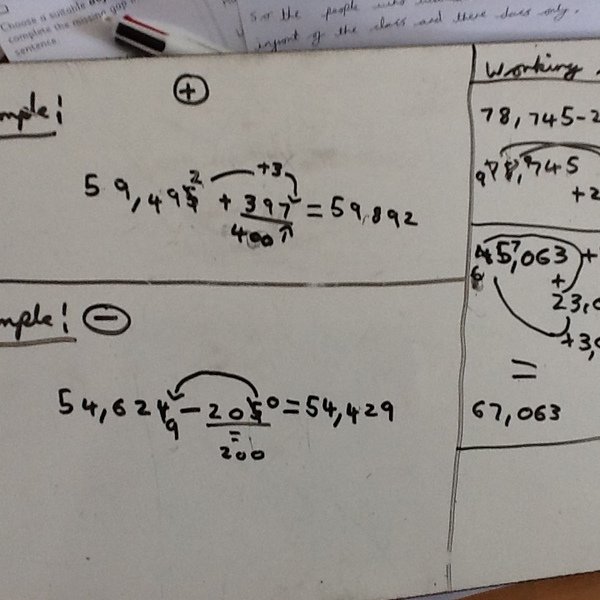 Choose a suitable
complete the missing gap
sentence.
s or the people who
of the class and there does only.
mple!
+
59,495 2 +3
+ 397 = 59,892
400
mple! −
54,624 9 − 205 0 = 54,429
=
200
Working
78,745-2
78,745
+2
45,063 +
+
23,0
+3,0
=
67,063